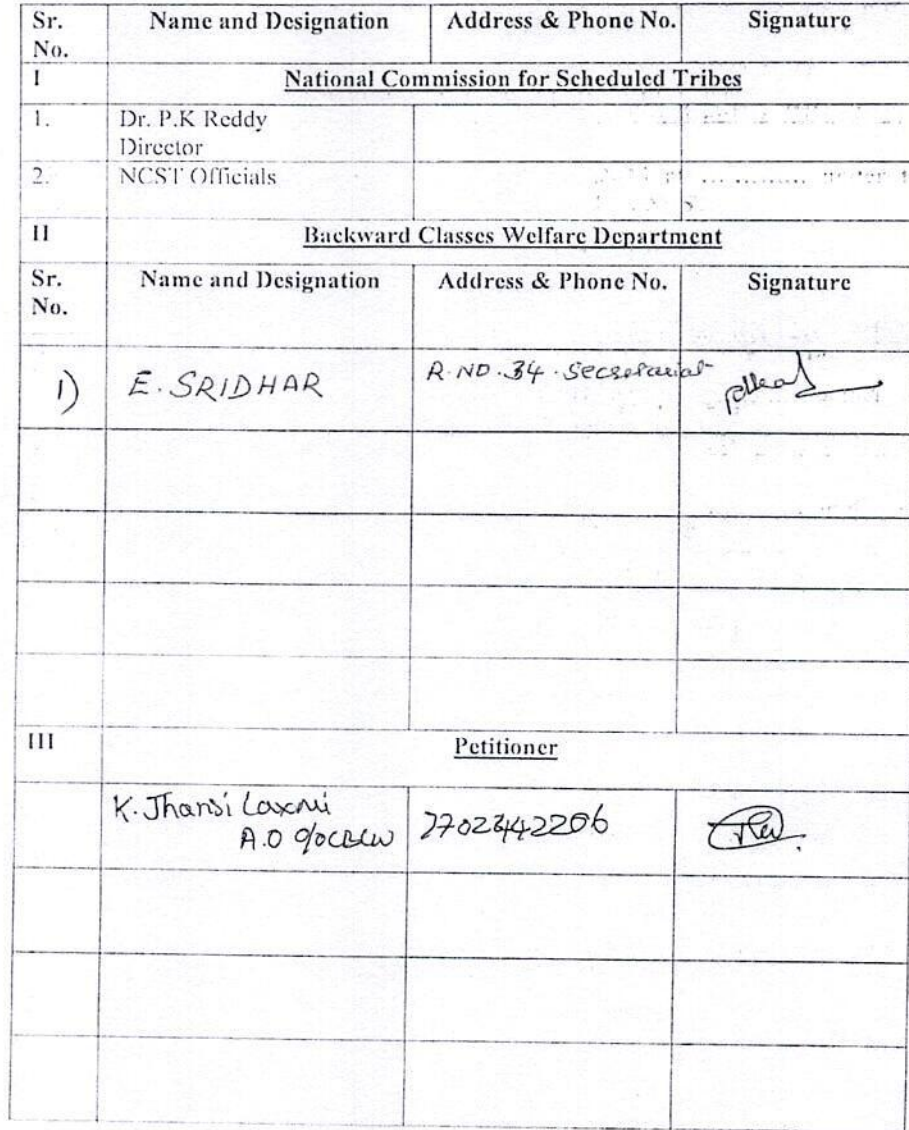 Sr. No. Name and Designation Address & Phone No. Signature
I National Commission for Scheduled Tribes
1. Dr. P.K Reddy
Director
2. NCST Officials
II Backward Classes Welfare Department
Sr. No. Name and Designation Address & Phone No. Signature
1) E. SRIDHAR R. NO. 34. Secretariat
III Petitioner
K. Jhansi Laxmi
A.O